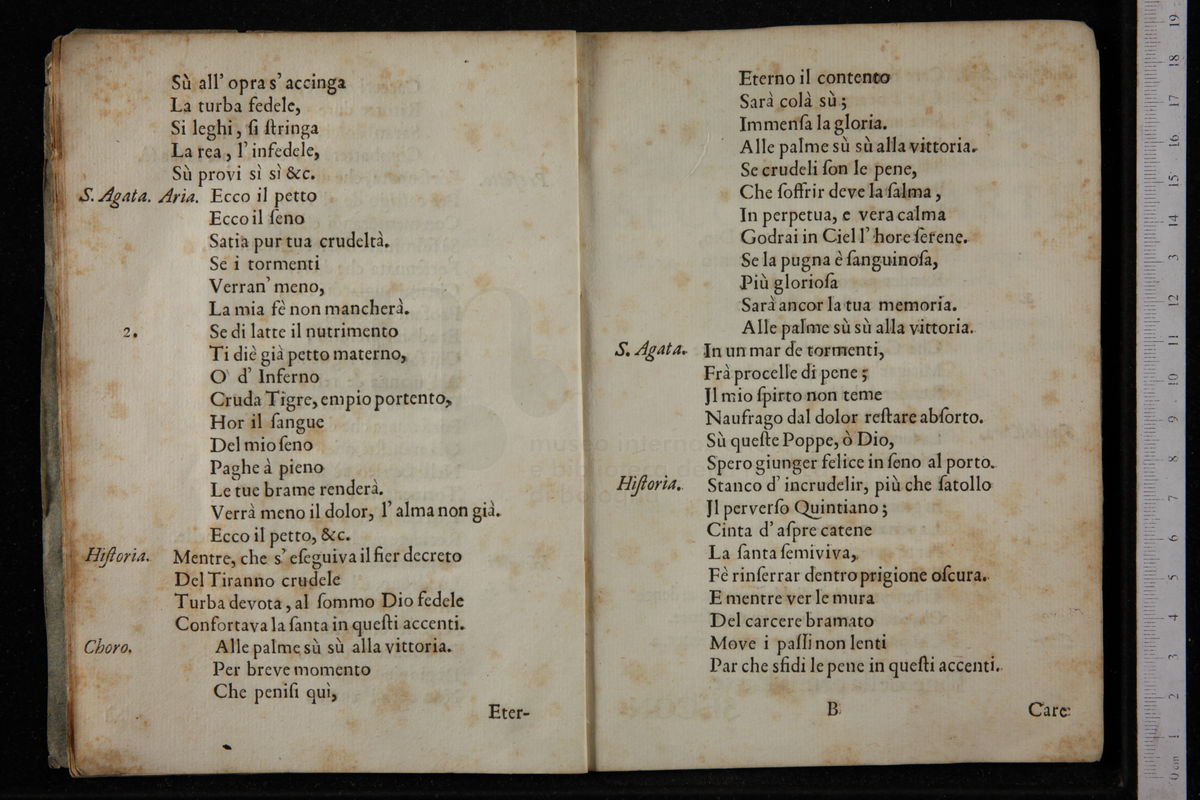 Sù all' opra s' accinga
La turba fedele,
Si leghi, ſi ſtringa
La rea, l' infedele,
Sù provi sì sì &c.
S. Agata. Aria. Ecco il petto
Ecco il ſeno
Satia pur tua crudeltà.
Se i tormenti
Verran' meno,
La mia fè non mancherà.
2. Se di latte il nutrimento
Ti diè già petto materno,
O' d' Inferno
Cruda Tigre, empio portento,
Hor il ſangue
Del mio ſeno
Paghe à pieno
Le tue brame renderà.
Verrà meno il dolor, l' alma non già.
Ecco il petto, &c.
Hiſtoria. Mentre, che s' eſeguiva il fier decreto
Del Tiranno crudele
Turba devota, al ſommo Dio fedele
Confortava la ſanta in queſti accenti.
Choro. Alle palme sù sù alla vittoria.
Per breve momento
Che peniſi quì,
Eter-
Eterno il contento
Sarà colà sù;
Immenſa la gloria.
Alle palme sù sù alla vittoria.
Se crudeli ſon le pene,
Che ſoffrir deve la ſalma,
In perpetua, e vera calma
Godrai in Ciel l' hore ſerene.
Se la pugna è ſanguinoſa,
Più glorioſa
Sarà ancor la tua memoria.
Alle palme sù sù alla vittoria.
S. Agata. In un mar de tormenti,
Frà procelle di pene;
Jl mio ſpirto non teme
Naufrago dal dolor reſtare abſorto.
Sù queſte Poppe, ò Dio,
Spero giunger felice in ſeno al porto.
Hiſtoria. Stanco d' incrudelir, più che ſatollo
Jl perverſo Quintiano;
Cinta d' aſpre catene
La ſanta ſemiviva,
Fè rinſerrar dentro prigione oſcura.
E mentre ver le mura
Del carcere bramato
Move i paſſi non lenti
Par che sfidi le pene in queſti accenti.
B
Care